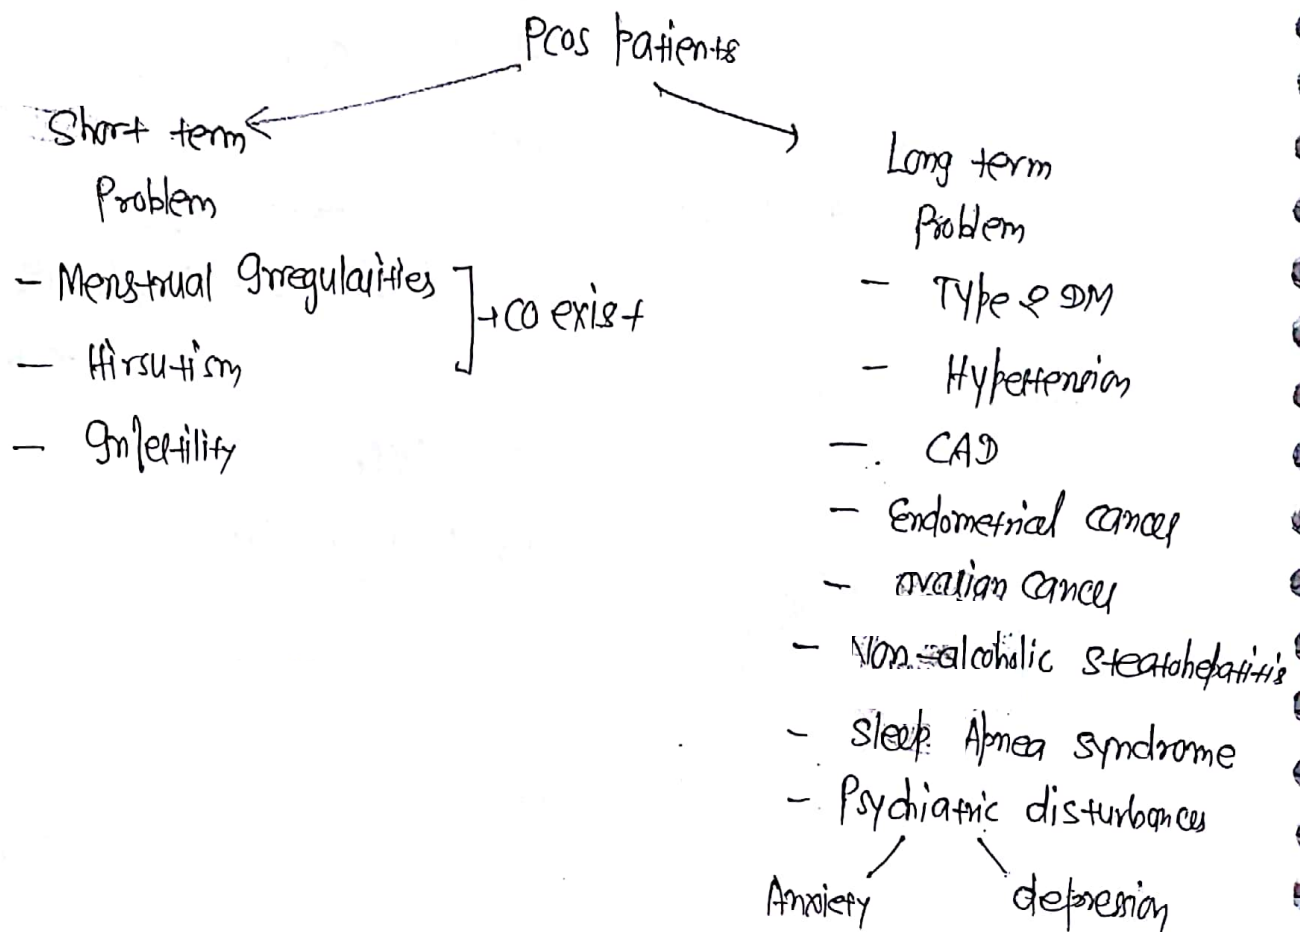 PCOS patients
Short term
Problem
- Menstrual Irregularities
- Hirsutism
→ CO exist
- Infertility
Long term
Problem
- Type 2 DM
- Hypertension
- CAD
- Endometrical cancer
- ovarian cancer
- Non-alcoholic steatohepatitis
- Sleep Apnea syndrome
- Psychiatric disturbances
Anxiety depression